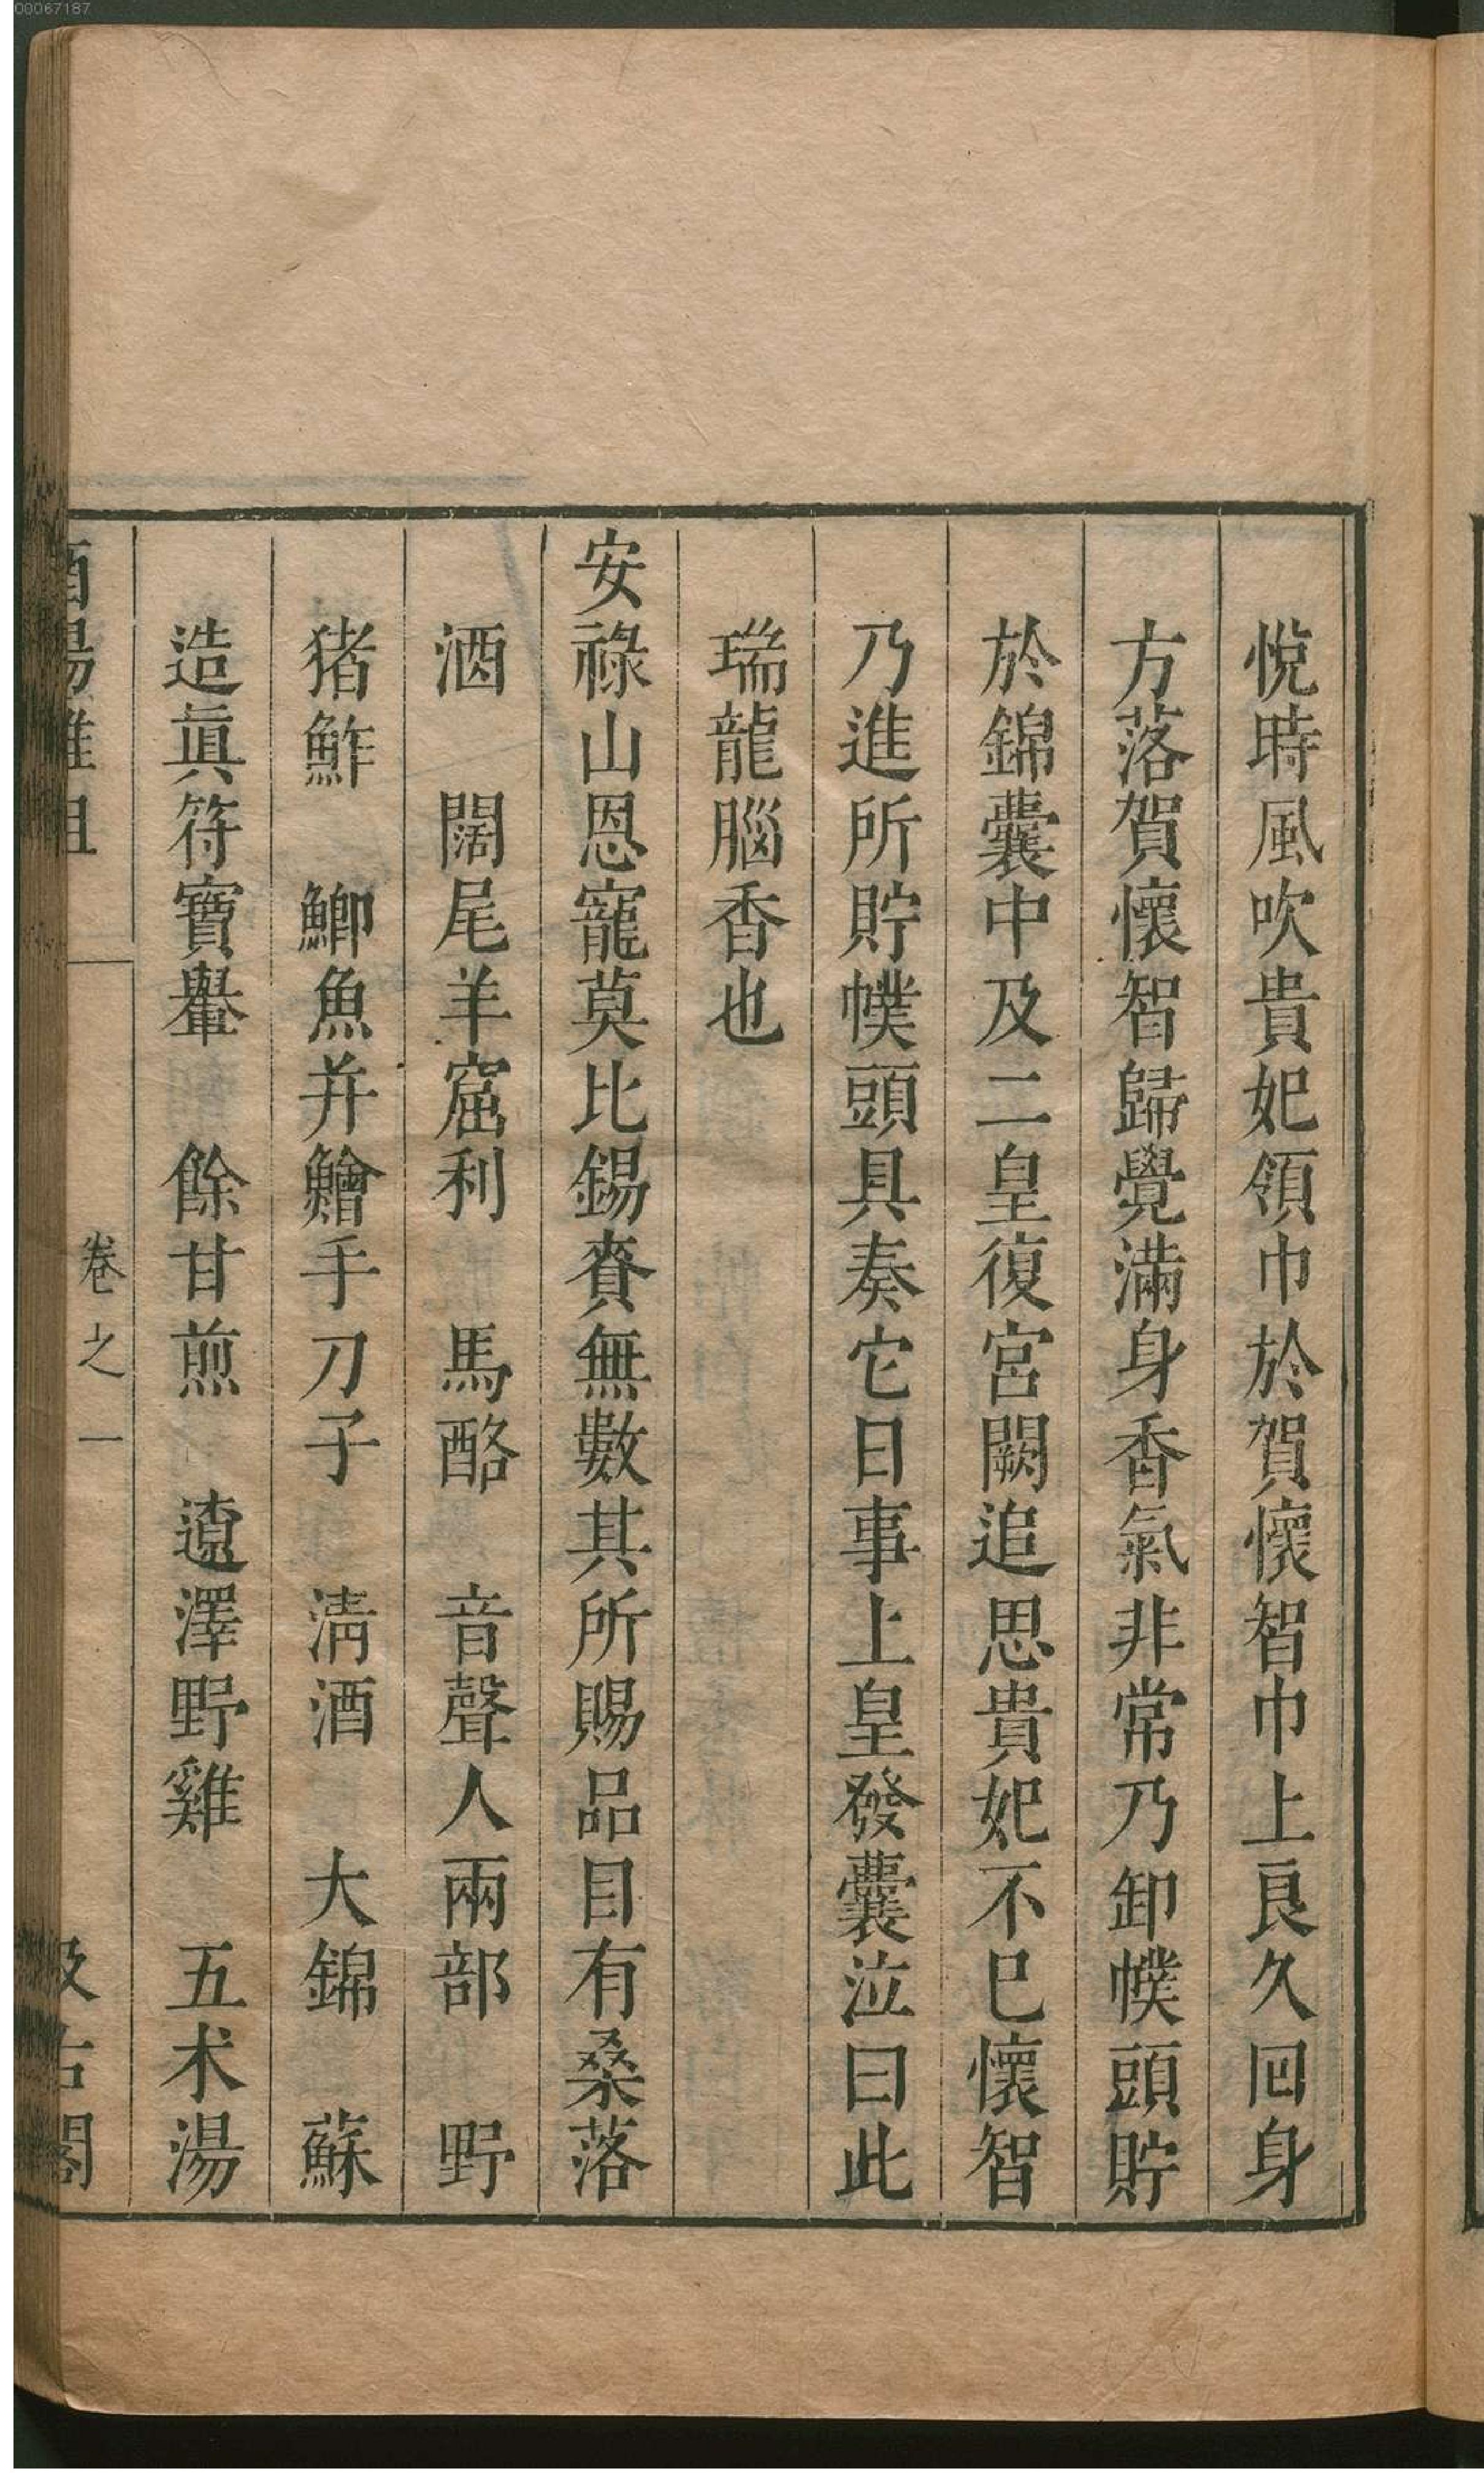 悅時風吹貴妃領巾於賀懷智巾上良久回身
方落賀懷智歸覺滿身香氣非常乃卸幞頭貯
於錦囊中及二皇復宮闕追思貴妃不已懷智
乃進所貯幞頭具奏它日事上皇發囊泣曰此
瑞龍腦香也
安祿山恩寵莫比錫賚無數其所賜品目有桑落
酒　闊尾羊窟利　馬酪　音聲人兩部　野
猪鮓　鯽魚并鱠手刀子　淸酒　大錦　蘇
造眞符寶轝　餘甘煎　遼澤野雞　五术湯
酉陽雜俎　卷之一　汲古閣
00067187